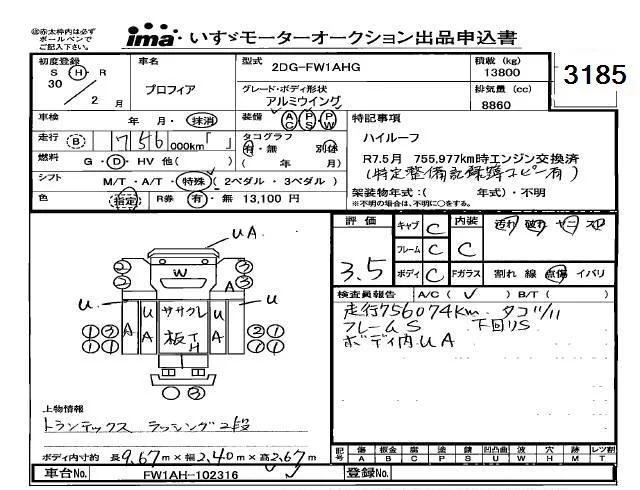 ㊟赤太枠内は必ず
ボールペンで
ご記入下さい。
ima いすゞモーターオークション出品申込書
3185
初度登録 S H R 30 / 2 月
車名 プロフィア
型式 2DG-FW1AHG
積載 (kg) 13800
グレード・ボディ形状 アルミウイング
排気量 (cc) 8860
車検 年 月・抹消
装備 AC PS PW
特記事項
走行 B 756 000km「 」
タコグラフ 有・無 別体 ( 年 月)
ハイルーフ
燃料 G・D・HV 他( )
R7.5月 755,977km時エンジン交換済
(特定整備記録簿コピー有)
シフト M/T・A/T・特殊(2ペダル・3ペダル)
架装物年式:( 年式)・不明
※不明の場合は、不明に○をする。
色 指定 R券 有・無 13,100 円
評価 3.5
キャブ C 内装 C 汚れ 破れ ヤニ スレ
フレーム C
ボディ C Fガラス 割れ 線 点傷 イバリ
検査員報告 A/C ( ✓ ) B/T ( )
走行756074km. タコ
フレームS 下回りS
ボディ内UA
UA
② ③
② W A ③
U U
U ササクレ U
①③ A A 板エ A A ②①
①① ①①
③
上物情報
トランテックス ラッシング2段
ボディ内寸約 長9.67m×幅2.40m×高2.67m
記号 傷 A 板金 B 腐 C 塗 P 錆 S 凹凸曲 U 波 W 穴 H 跡 M レツ割 T
車台No. FW1AH-102316
登録No.